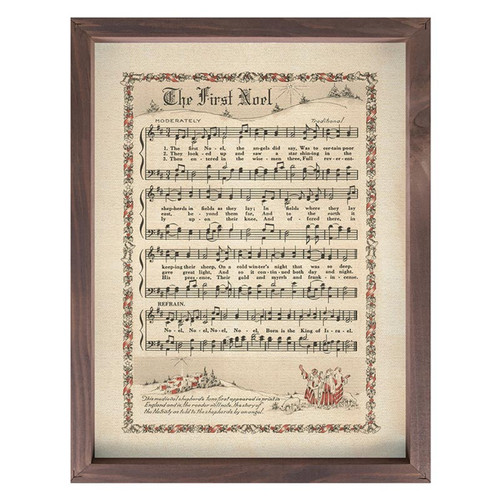 The First Noel
MODERATELY
Traditional
1. The first No-el, the angels did say, Was to certain poor
2. They look-ed up and saw a star shin-ing in the
3. Then en-tered in the wise men three, Full rev-er-ent-
shep-herds in fields as they lay; In fields where they lay
east, be-yond them far, And to the earth it
ly up-on their knee, And of-fered there, in
keeping their sheep, On a cold winter's night that was so deep.
gave great light, And so it contin-ued both day and night.
His pres-ence, Their gold and myrrh and frank-in-cense.
REFRAIN.
No-el, No-el, No-el, No-el, Born is the King of Is-ra-el.
This medieval shepherds tune first appeared in print in
England and in the reader will note, the story of
the Nativity as told to the shepherds by an angel.